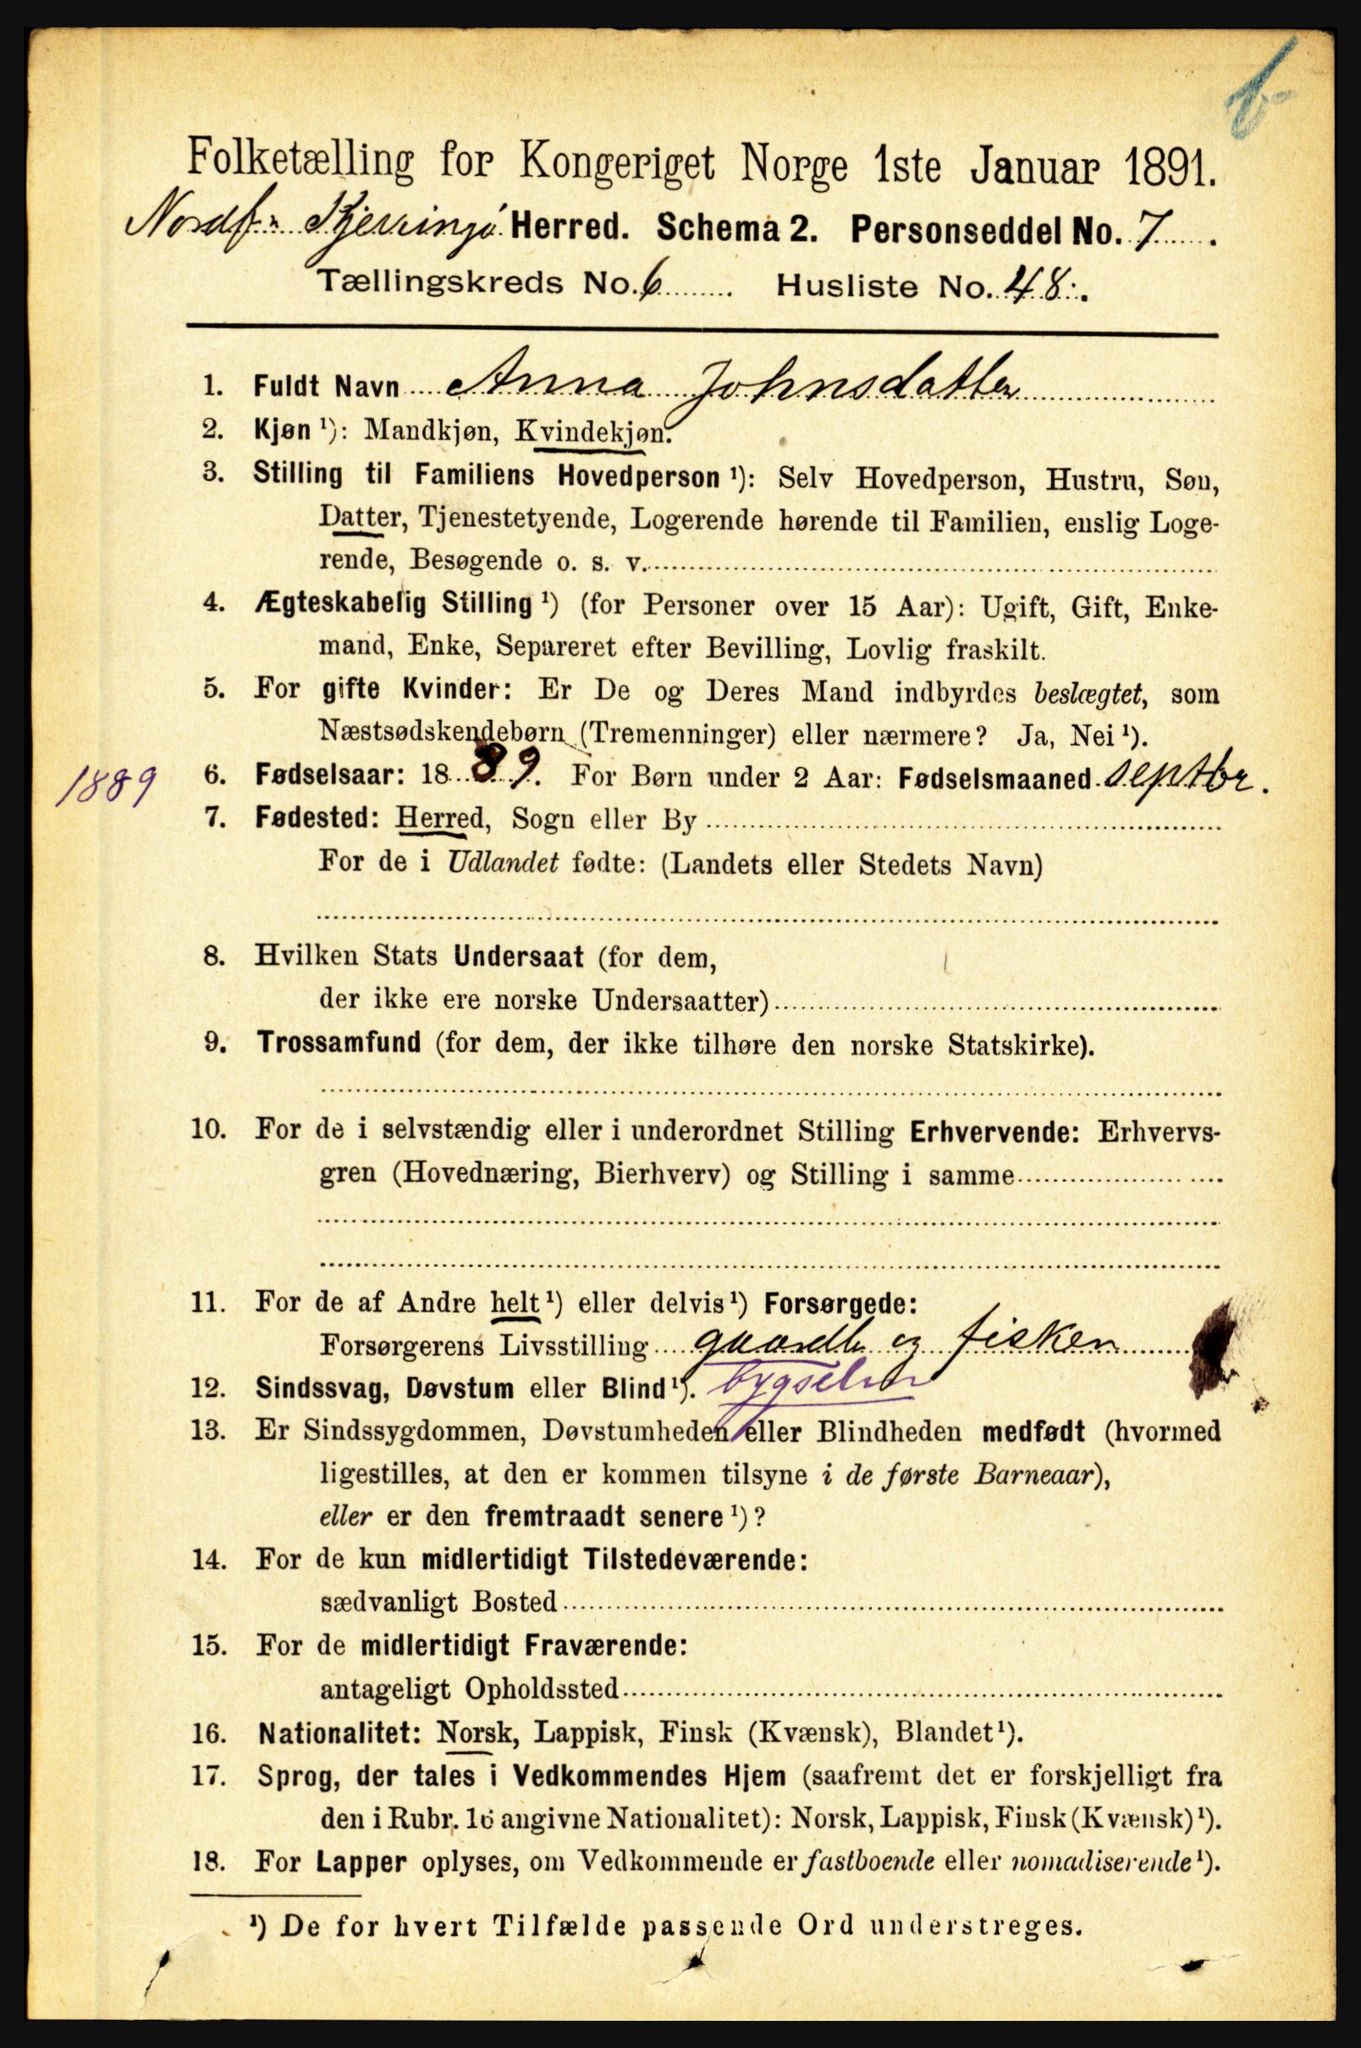 b
Folketælling for Kongeriget Norge 1ste Januar 1891.
Nordf. Kjerringö Herred. Schema 2. Personseddel No. 7.
Tællingskreds No. 6. Husliste No. 48.
1. Fuldt Navn Anna Johnsdatter
2. Kjøn ¹): Mandkjøn, Kvindekjøn.
3. Stilling til Familiens Hovedperson ¹): Selv Hovedperson, Hustru, Søn,
Datter, Tjenestetyende, Logerende hørende til Familien, enslig Loge-
rende, Besøgende o. s. v.
4. Ægteskabelig Stilling ¹) (for Personer over 15 Aar): Ugift, Gift, Enke-
mand, Enke, Separeret efter Bevilling, Lovlig fraskilt.
5. For gifte Kvinder: Er De og Deres Mand indbyrdes beslægtet, som
Næstsødskendebørn (Tremenninger) eller nærmere? Ja, Nei ¹).
1889 6. Fødselsaar: 1889. For Børn under 2 Aar: Fødselsmaaned septbr.
7. Fødested: Herred, Sogn eller By
For de i Udlandet fødte: (Landets eller Stedets Navn)
8. Hvilken Stats Undersaat (for dem,
der ikke ere norske Undersaatter)
9. Trossamfund (for dem, der ikke tilhøre den norske Statskirke).
10. For de i selvstændig eller i underordnet Stilling Erhvervende: Erhvervs-
gren (Hovednæring, Bierhverv) og Stilling i samme
11. For de af Andre helt ¹) eller delvis ¹) Forsørgede:
Forsørgerens Livsstilling gaardb og fisker
12. Sindssvag, Døvstum eller Blind ¹). bygselm
13. Er Sindssygdommen, Døvstumheden eller Blindheden medfødt (hvormed
ligestilles, at den er kommen tilsyne i de første Barneaar),
eller er den fremtraadt senere ¹)?
14. For de kun midlertidigt Tilstedeværende:
sædvanligt Bosted
15. For de midlertidigt Fraværende:
antageligt Opholdssted
16. Nationalitet: Norsk, Lappisk, Finsk (Kvænsk), Blandet ¹).
17. Sprog, der tales i Vedkommendes Hjem (saafremt det er forskjelligt fra
den i Rubr. 16 angivne Nationalitet): Norsk, Lappisk, Finsk (Kvænsk) ¹).
18. For Lapper oplyses, om Vedkommende er fastboende eller nomadiserende ¹).
¹) De for hvert Tilfælde passende Ord understreges.